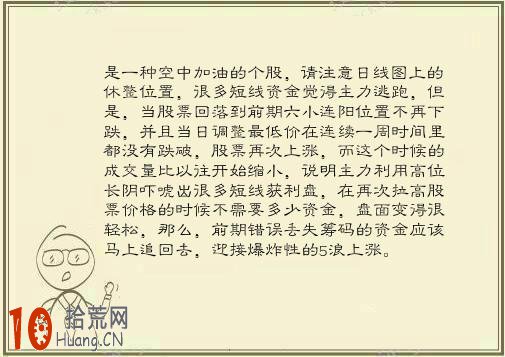 是一种空中加油的个股，请注意日线图上的
休整位置，很多短线资金觉得主力逃跑，但
是，当股票回落到前期六小连阳位置不再下
跌，并且当日调整最低价在连续一周时间里
都没有跌破，股票再次上涨，而这个时候的
成交量比以往开始缩小，说明主力利用高位
长阴吓唬出很多短线获利盘，在再次拉高股
票价格的时候不需要多少资金，盘面变得很
轻松，那么，前期错误丢失筹码的资金应该
马上追回去，迎接爆炸性的5浪上涨。
10 拾荒网
Huang.CN